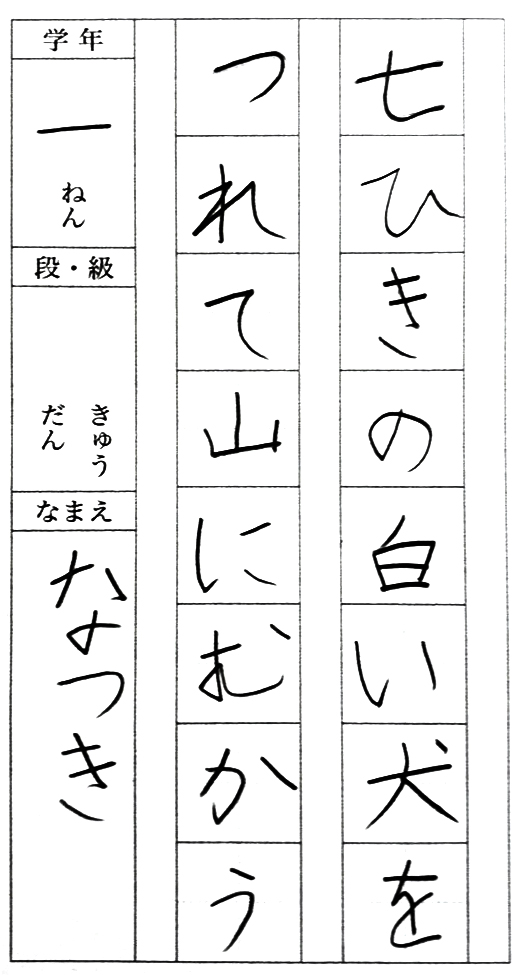 七ひきの白い犬を
つれて山にむかう
学年
一ねん
段・級
きゅう
だん
なまえ
なつき